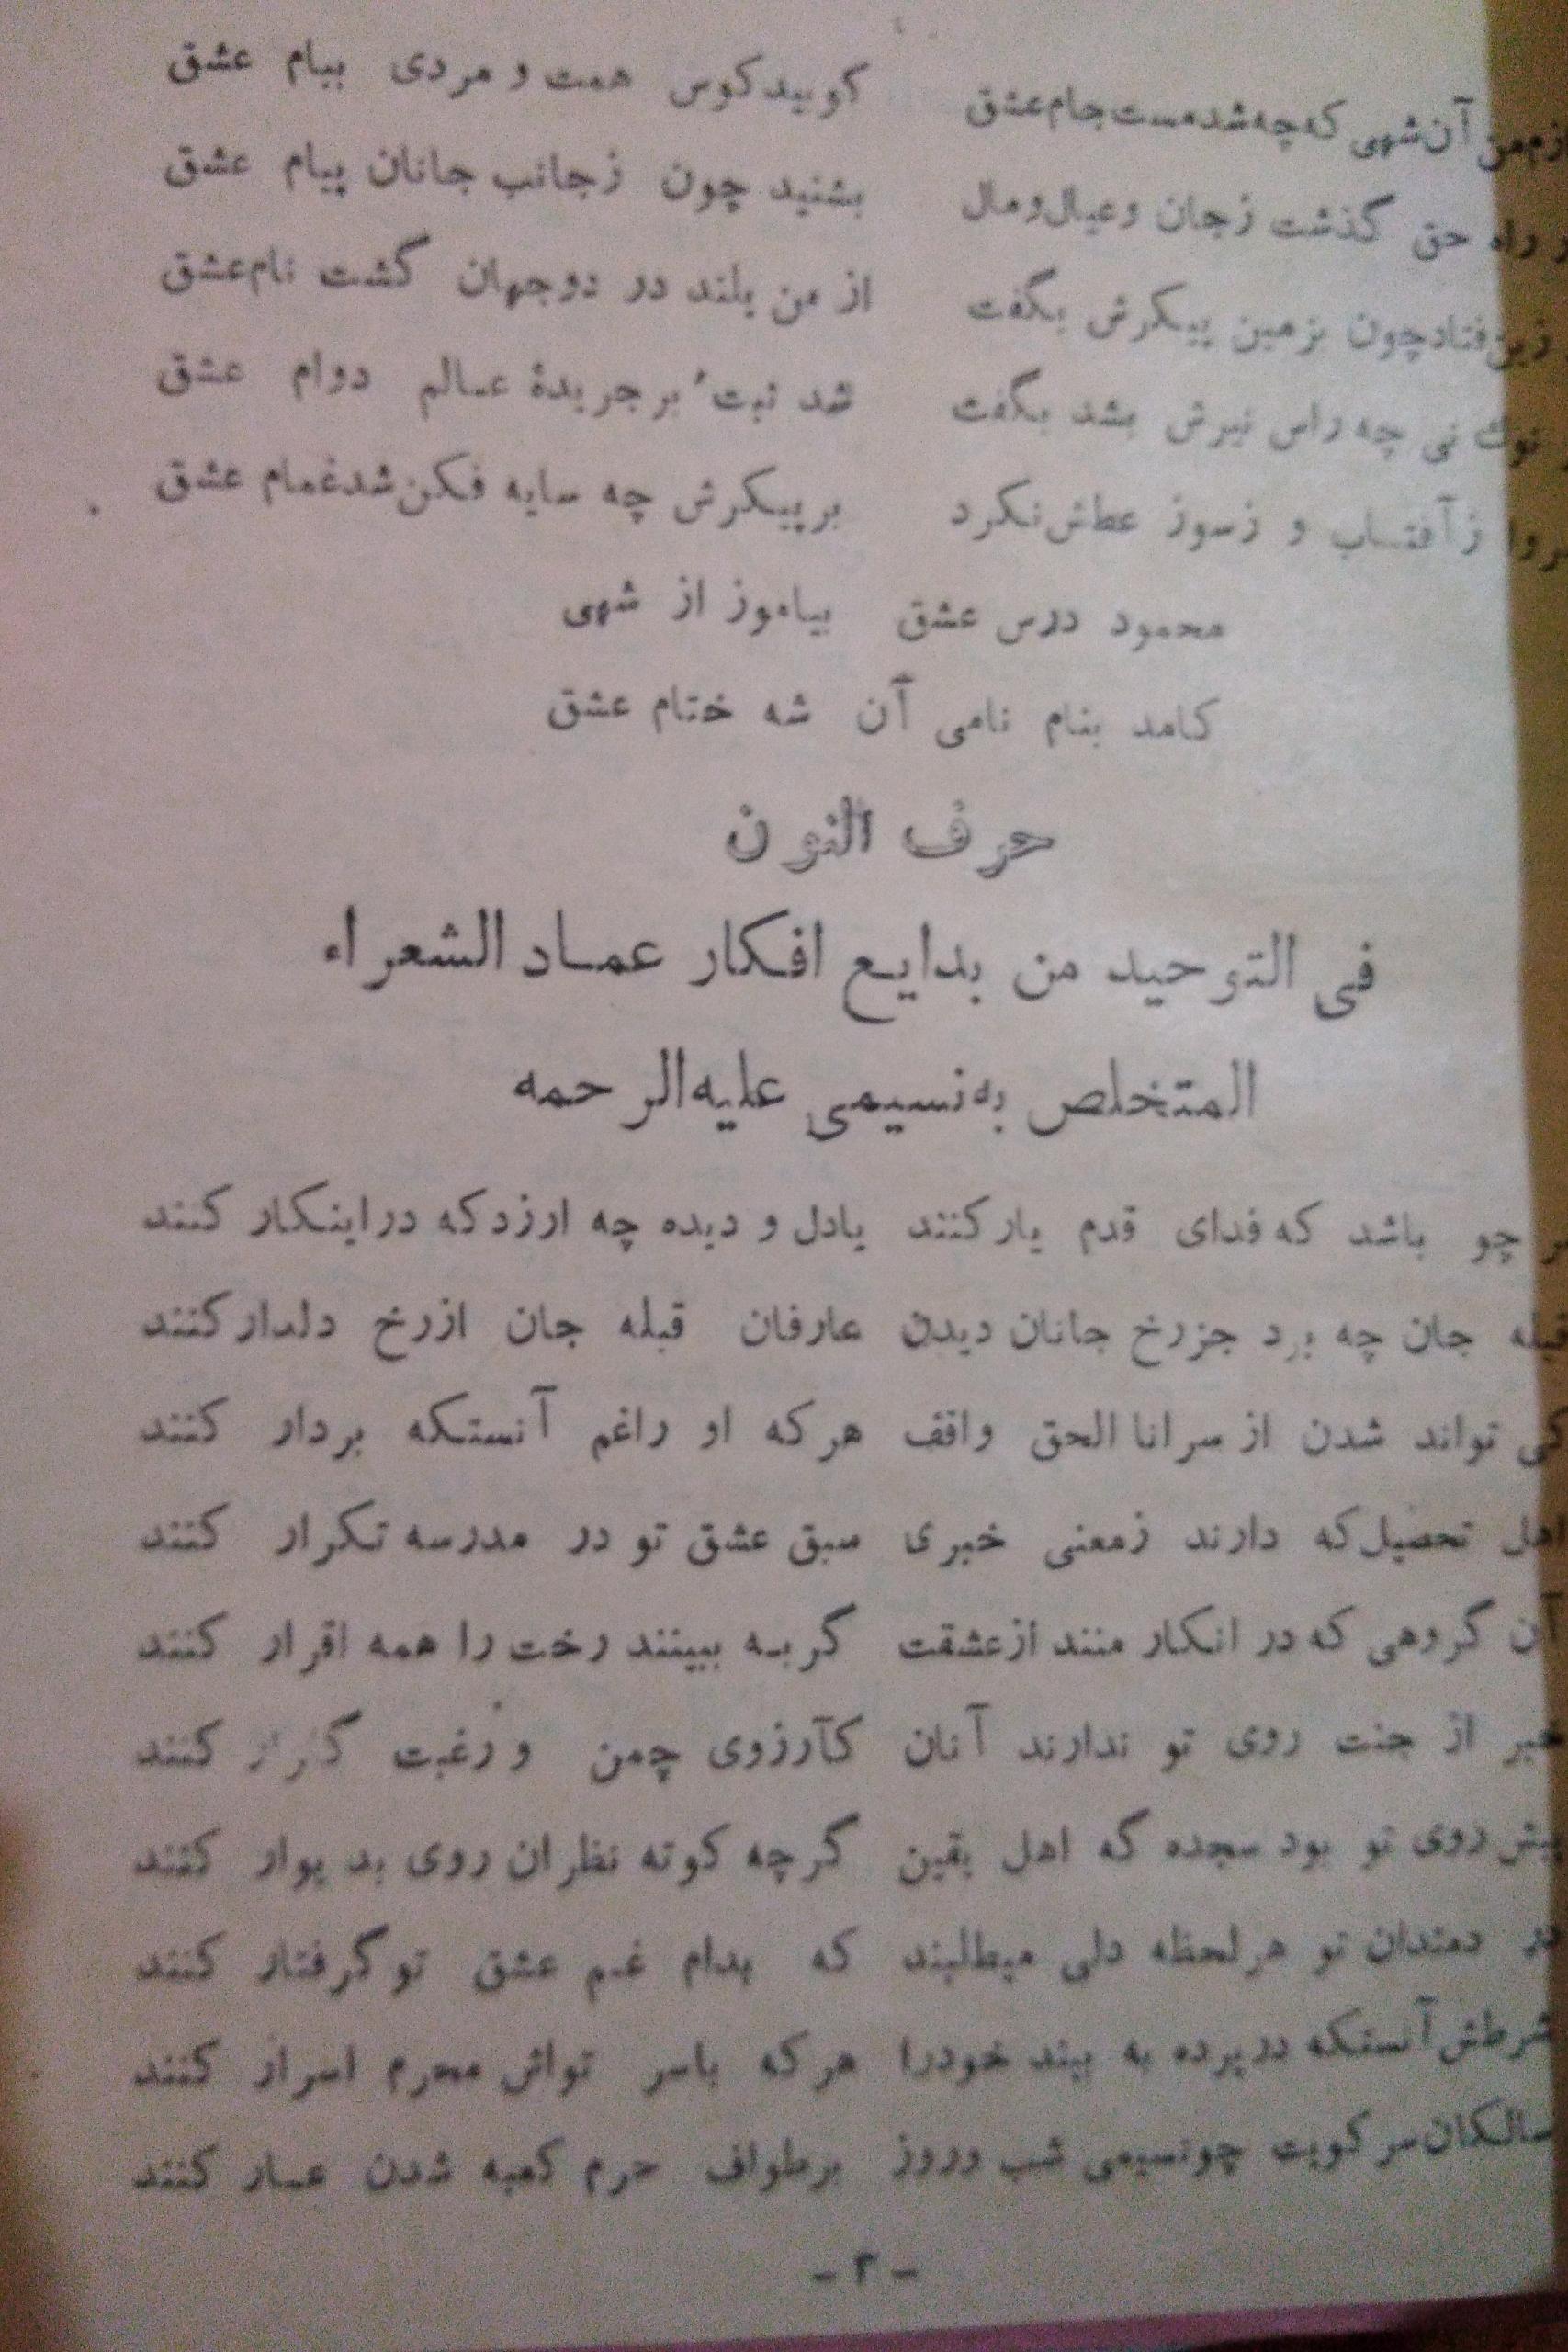 آن شهی که چه شد مست جام عشق کوبید کوس همت و مردی ببام عشق
راه حق گذشت زجان و عیال و مال بشنید چون زجانب جانان پیام عشق
فتاد چون بزمین پیکرش بگفت از من بلند در دو جهان گشت نام عشق
نوك نی چه راس نیرش بشد بگفت شد ثبت بر جریدهٔ عالم دوام عشق
زآفتاب و زسوز عطاش نکرد بر پیکرش چه سایه فکن شد غمام عشق
محمود درس عشق بیاموز از شهی
کامد بنام نامی آن شه ختام عشق
حرف النون
فی التوحید من بدایع افکار عماد الشعراء
المتخلص به نسیمی علیه الرحمه
چو باشد که فدای قدم یار کنند یادل و دیده چه ارزد که در اینکار کنند
قبله جان چه بود جز رخ جانان دیدن عارفان قبله جان از رخ دلدار کنند
کی تواند شدن از سر انا الحق واقف هر که او راغم آنستکه بردار کنند
اهل تحصیل که دارند زمعنی خبری سبق عشق تو در مدرسه تکرار کنند
آن گروهی که در انکار منند از عشقت گر به بینند رخت را همه اقرار کنند
خبر از جنت روی تو ندارند آنان کآرزوی چمن و رغبت کنند
پیش روی تو بود سجده گه اهل یقین گرچه کوته نظران روی بدیوار کنند
دمندان تو هر لحظه دلی میطلبند که بدام غم عشق تو گرفتار کنند
شرطش آنستکه در پرده به بیند خودرا هر که باسر تواش محرم اسرار کنند
سالکان سر کویت چونسیمی شب و روز بر طواف حرم کعبه شدن عار کنند
- ۲ -